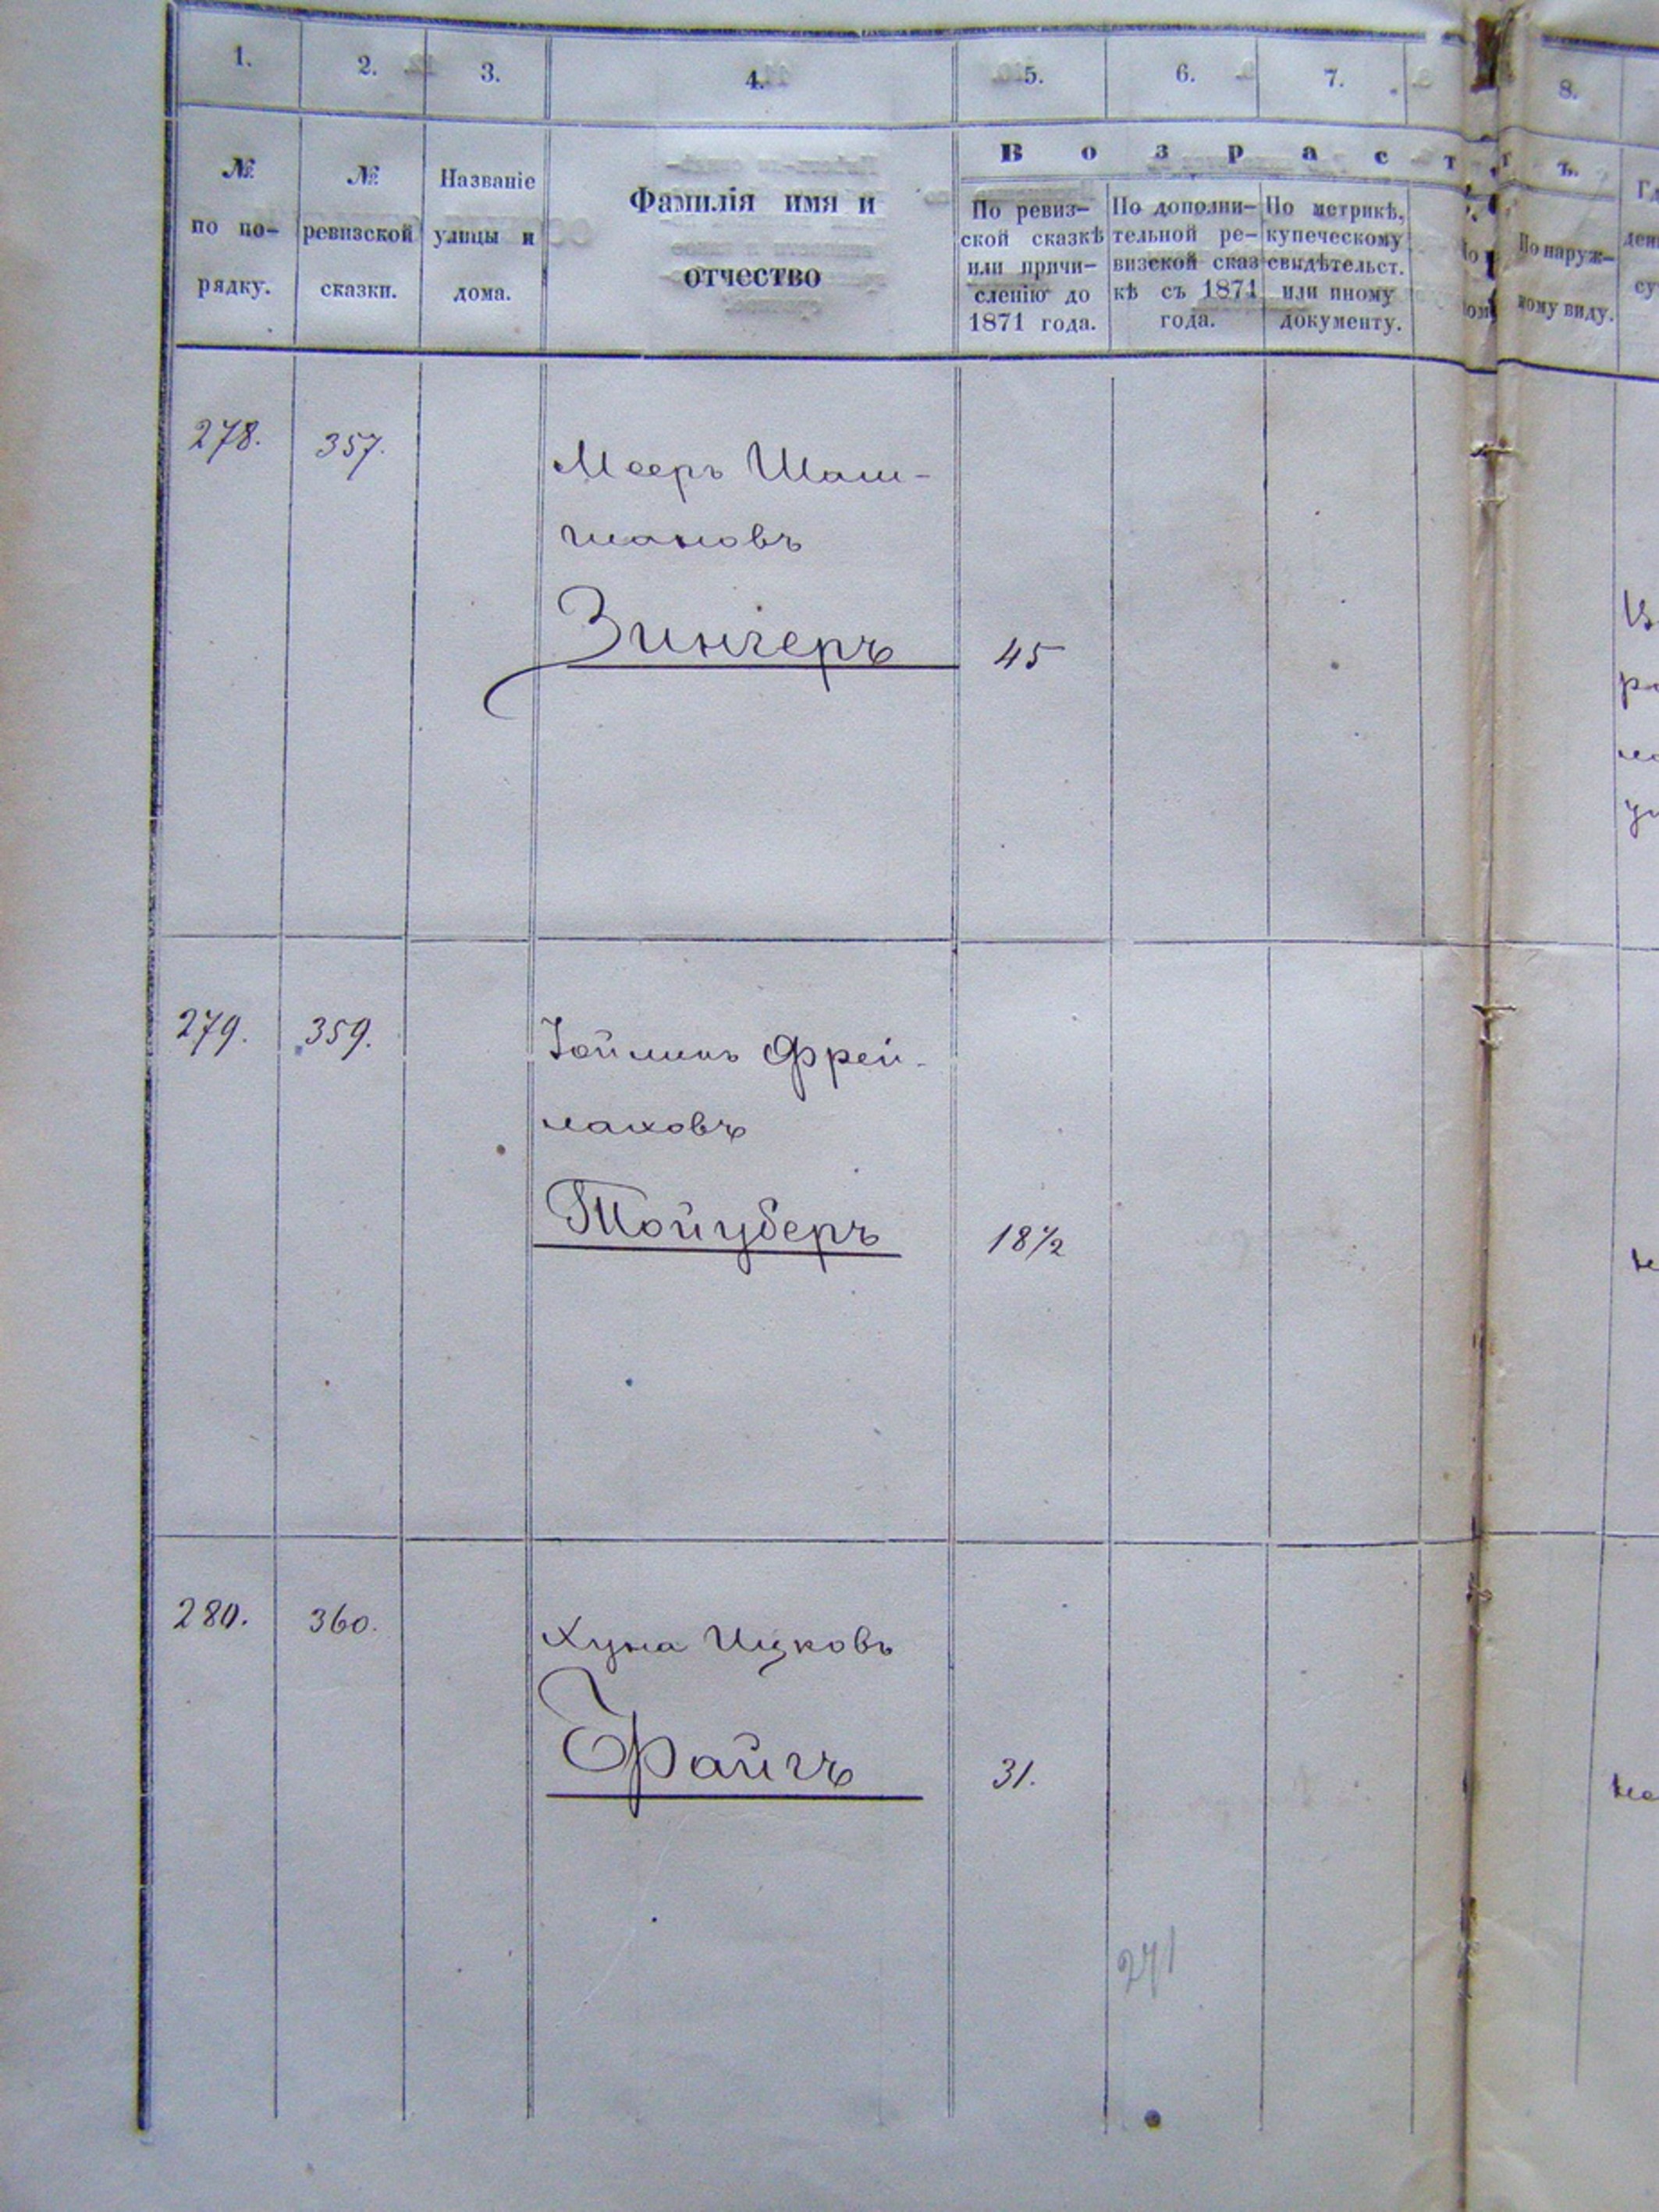 1. 2. 3. 4. 5. 6. 7. 8.
№ по по-
рядку.
№
ревизской
сказки.
Названіе
улицы и
дома.
Фамилія имя и
отчество
Возрастъ.
По ревиз-
ской сказкѣ
или причи-
сленію до
1871 года.
По дополни-
тельной ре-
визской сказ
кѣ съ 1871
года.
По метрикѣ,
купеческому
свидѣтельст.
или иному
документу.
По наруж-
ному виду.
278. 357.
Мееръ
Зингеръ 45
279. 359.
Фрей-
маховъ
Тойуберъ 18 1/2
280. 360.
Хуна Ицковъ
Файгъ 31.
271